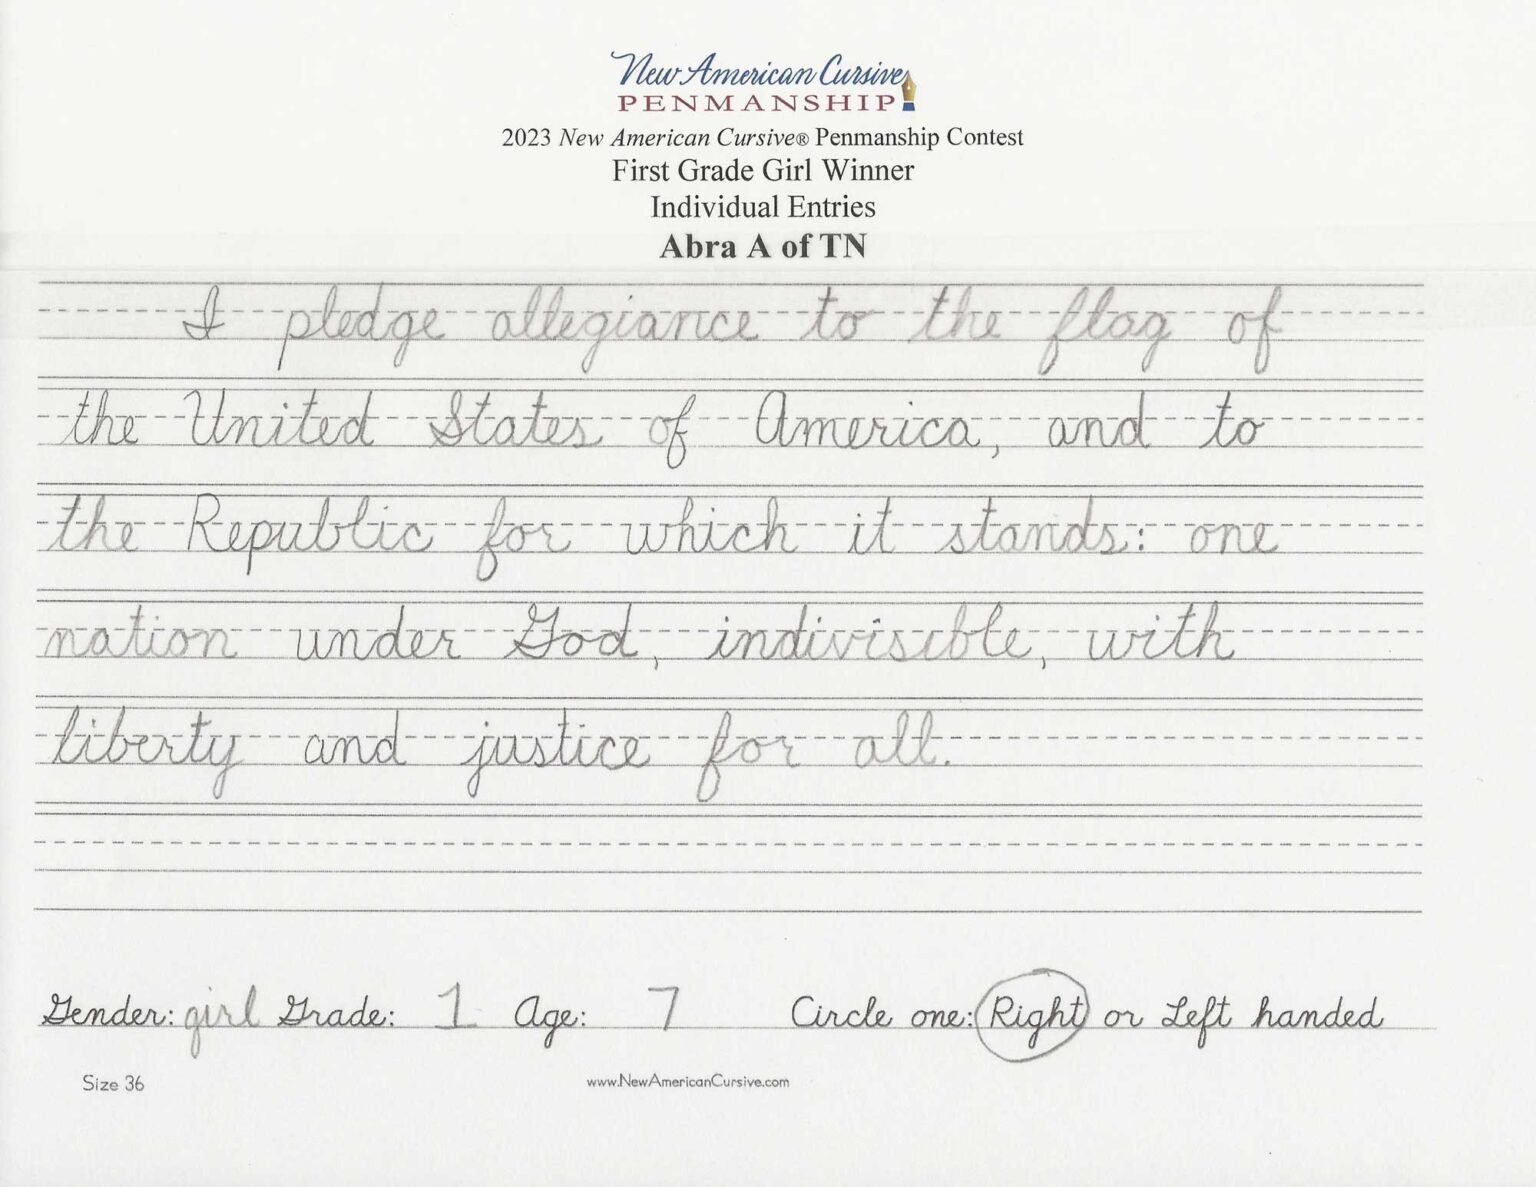 New American Cursive
PENMANSHIP
2023 New American Cursive® Penmanship Contest
First Grade Girl Winner
Individual Entries
Abra A of TN
I pledge allegiance to the flag of
the United States of America, and to
the Republic for which it stands: one
nation under God, indivisible, with
liberty and justice for all.
Gender: girl Grade: 1 Age: 7 Circle one: Right or Left handed
Size 36 www.NewAmericanCursive.com